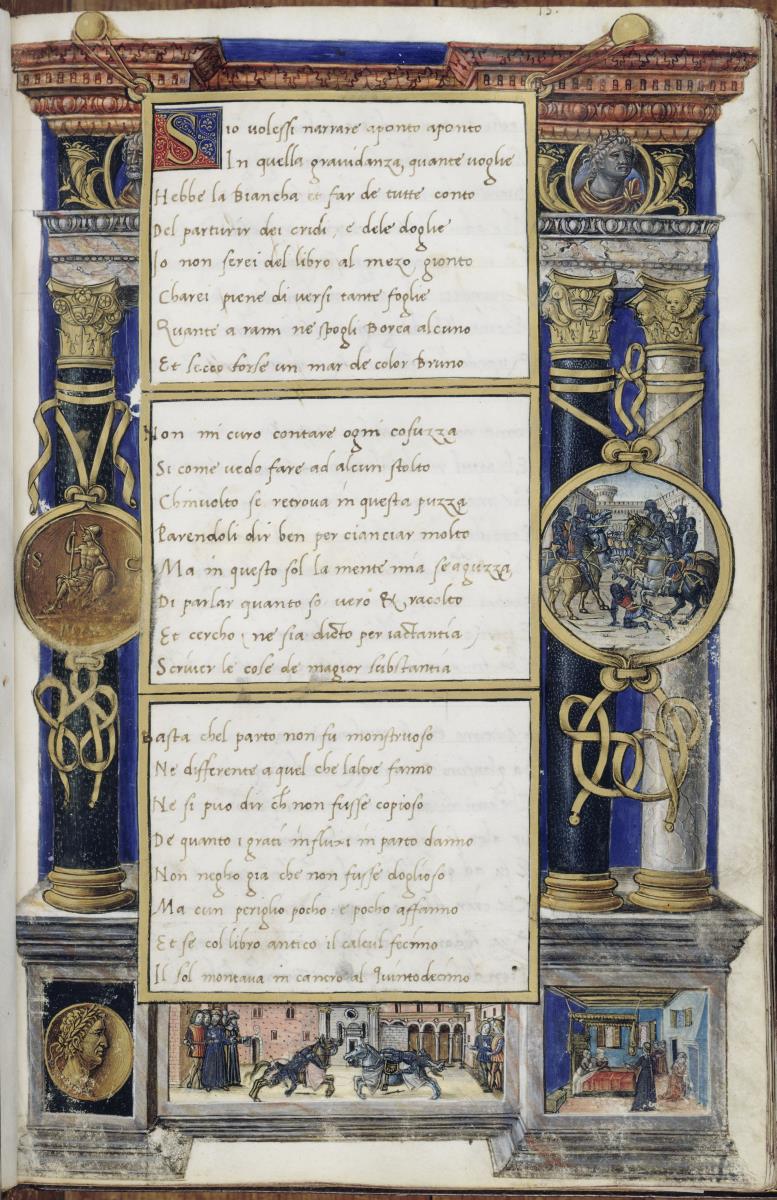 15.
S io volessi narrare aponto aponto
In quella gravidanza, quante voglie
Hebbe la Biancha et far de tutte conto
Del parturir dei cridi, e dele doglie
Io non serei del libro al mezo gionto
Charei piene di versi tante foglie
Quante a rami ne spogli Borea alcuno
Et secco forse un mar de color Bruno
Non mi curo contare ogni cosuzza
Si come vedo fare ad alcun stolto
Chinvolto se retrova in questa puzza
Parendoli dir ben per cianciar molto
Ma in questo sol la mente mia se aguzza
Di parlar quanto so vero & racolto
Et cercho (ne sia dicto per iactantia)
Scriver le cose de magior substantia
Basta chel parto non fu monstruoso
Ne differente a quel che laltre fanno
Ne si puo dir ch non fusse copioso
De quanto i grati influxi in parto danno
Non negho gia che non fusse doglioso
Ma cun periglio pocho: e pocho affanno
Et se col libro antico il calcul fecimo
Il sol montava in cancro al Quintodecimo
S C